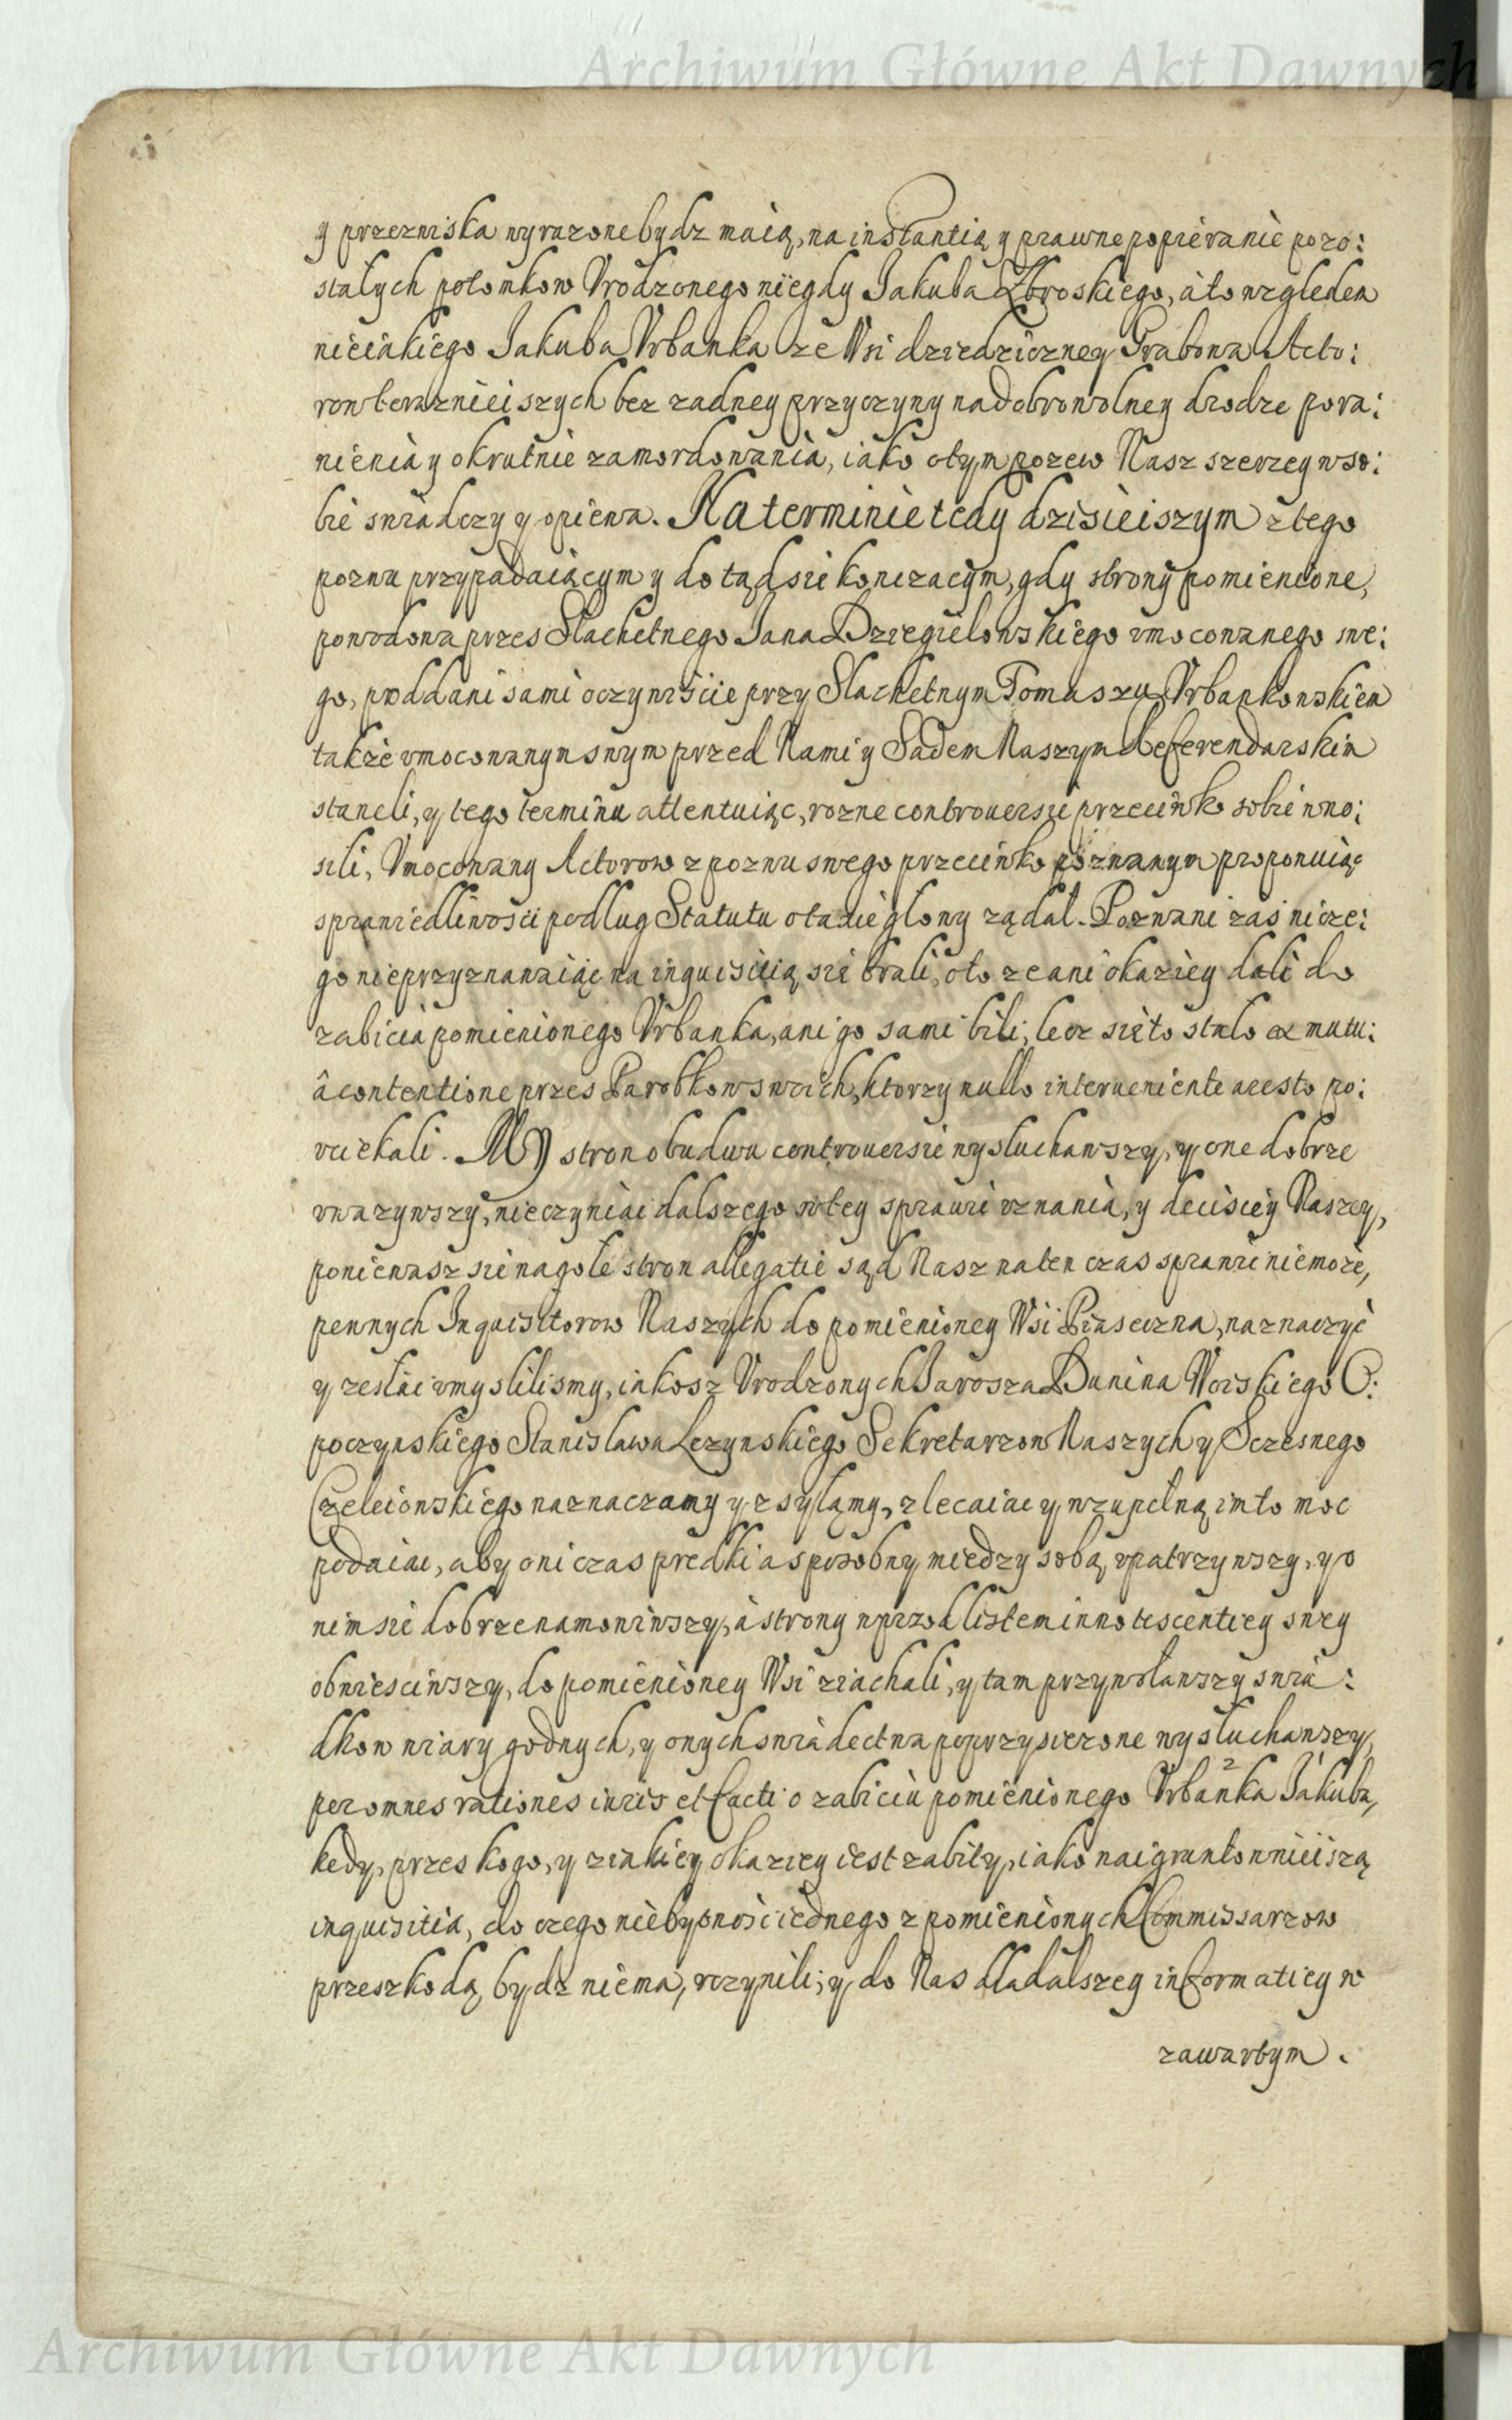 Archiwum Główne Akt Dawnych
y przezniska wyrazone bydz maią, na instantią y prawne popieranie pozo:
stałych potomkow Vrodzonego niegdy Jakuba Zbroskiego, à to względem
nieiakiego Jakuba Vrbanka ze Wsi dziedziczney Grabowa Acto:
row teraznieiszych bez zadney przyczyny na dobrowolney drodze pora:
nienia y okrutnie zamordowania, iako o tym pozew Nasz szerzey w so:
bie swiadczy y opiewa. Na terminie tedy dzisieiszym z tego
pozwu przypadaiącym y do tąd sie konczacym, gdy strony pomienione,
powodowa przes Slachetnego Jana Dziegielowskiego vmocowanego swe:
go, poddani sami oczywiscie przy Slachetnym Tomaszu Vrbankowskiem
także vmocowanym swym przed Nami y Sadem Naszym Referendarskim
staneli, y tego terminu attentuiąc, rozne controuersie przeciwko sobie wno:
sili, Vmocowany Actorow z pozwu swego przeciwko pozwanym proponuiąc
sprawiedliwosci podlug Statutu o takie glowy ządal. Pozwani zaś nicze:
go nie przyznawaiąc na inquisitią się brali, o to ze ani okaziey dali do
zabicia pomienionego Vrbanka, ani go sami bili, lecz sie to stalo ex mutu:
â contentione przes Parobkow swoich, ktorzy nullo interueniente aresto po:
vciekali. My stron obudwu controuersie wysluchawszy, y one dobrze
vwazywszy, nie czyniąc dalszego w tey sprawie vznania, y decisiey Naszey,
poniewasz sie na gołe stron allegatie sąd Nasz na ten czas sprawic nie może,
pewnych Inquisitorow Naszych do pomienioney Wsi Piaseczna, naznaczyć
y zesłac vmyslilismy, iakosz Vrodzonych Jarosza Dunina Woiskiego O:
poczynskiego Stanislawa Lezynskiego Sekretarzow Naszych y Sczesnego
Czeleiowskiego naznaczamy y zsyłamy, zlecaiac y w zupelną im to moc
podaiac, aby oni czas predki a sposobny miedzy sobą vpatrzywszy, y o
nim sie dobrze namowiwszy, à strony wprzod listem innotescentiey swey
obwiesciwszy, do pomienioney Wsi ziachali, y tam przywoławszy swia:
dkow wiary godnych, y onych swiadectwa poprzysiezone wysluchawszy,
per omnes rationes iuris et facti o zabiciu pomienionego Vrbanka Jakuba,
kedy, przes kogo, y z iakiey okaziey iest zabity, iako naigruntownieiszą
inquisitia, do czego niebytność iednego z pomienionych Commissarzow
przeszkodą bydz niema, vczynili; y do Nas dla dalszey informatiey w
zawartym.
Archiwum Główne Akt Dawnych